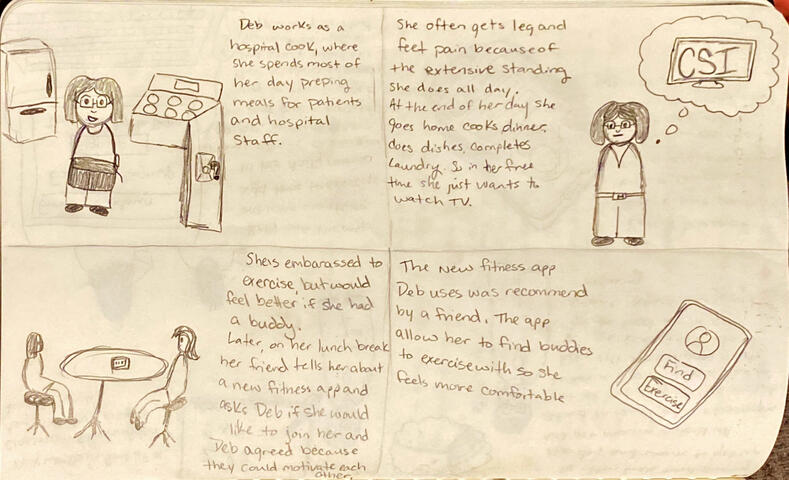 Deb works as a
hospital cook, where
she spends most of
her day preping
meals for patients
and hospital
staff.
She often gets leg and
feet pain because of
the extensive standing
she does all day.
At the end of her day she
goes home cooks dinner,
does dishes, completes
laundry. So in her free
time she just wants to
watch TV.
CSI
She is embarassed to
exercise, but would
feel better if she had
a buddy.
Later, on her lunch break
her friend tells her about
a new fitness app and
asks Deb if she would
like to join her and
Deb agreed because
they could motivate each
other.
The New fitness app
Deb uses was recommend
by a friend. The app
allow her to find buddies
to exercise with so she
feels more comfortable
Find
Exercise